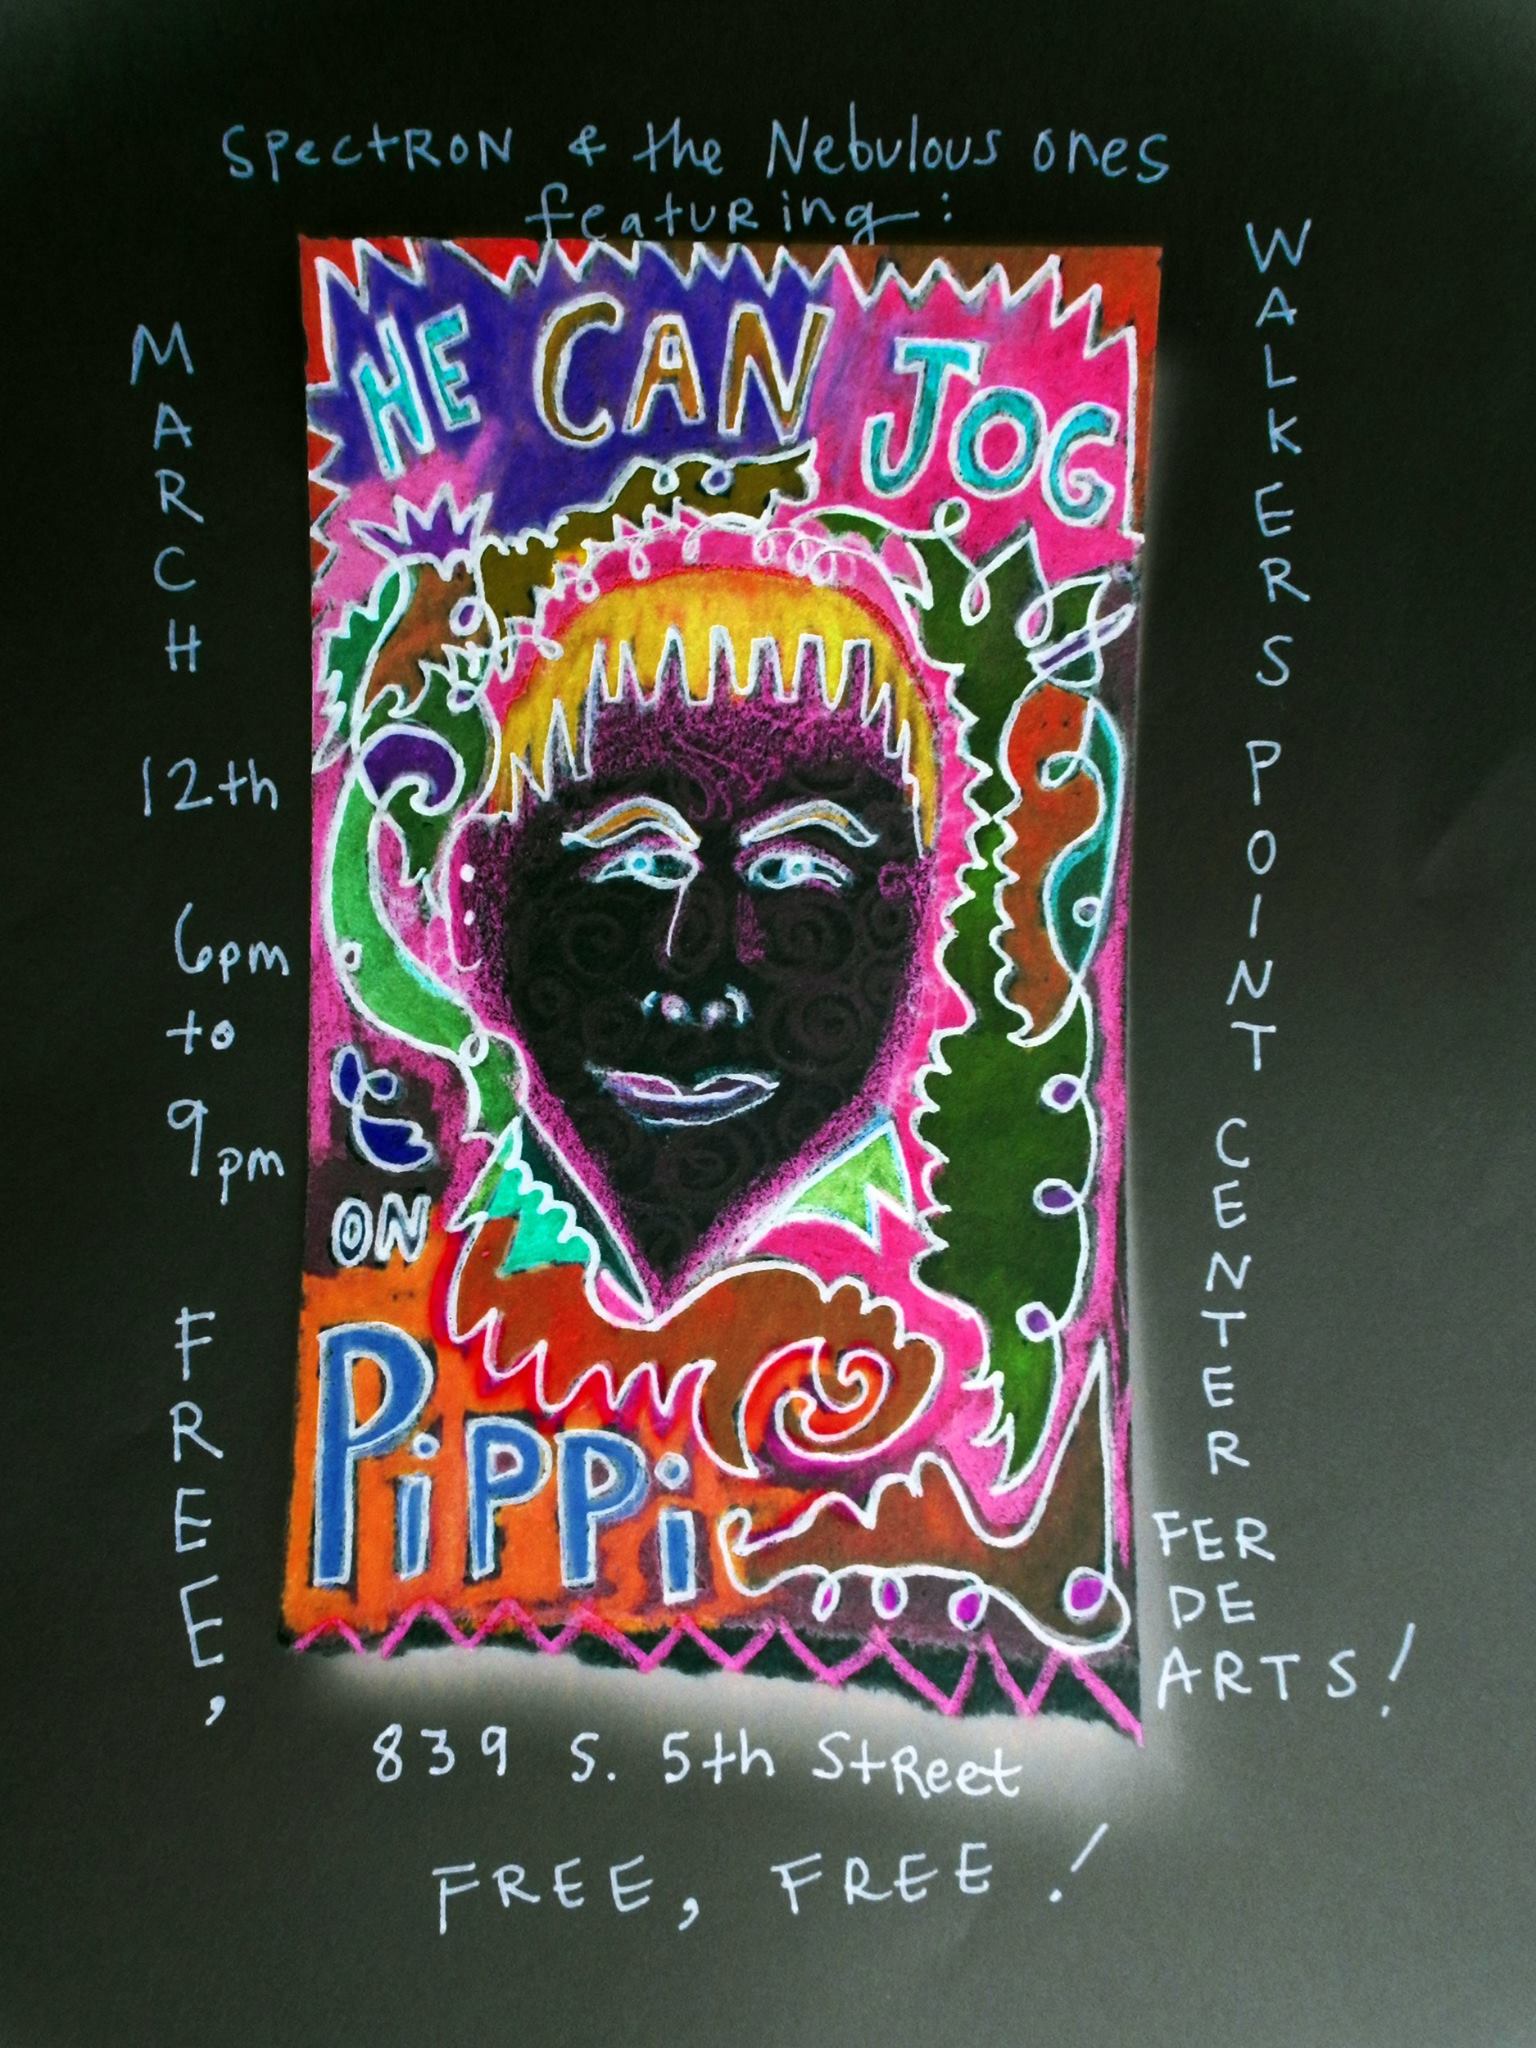 SpectRON & the Nebulous ones
featuring:
HE CAN JOG
ON
PiPPi
MARCH
12th
6pm
to
9pm
FREE,
WALKERS POINT CENTER
FER
DE
ARTS!
839 S. 5th StReet
FREE, FREE!